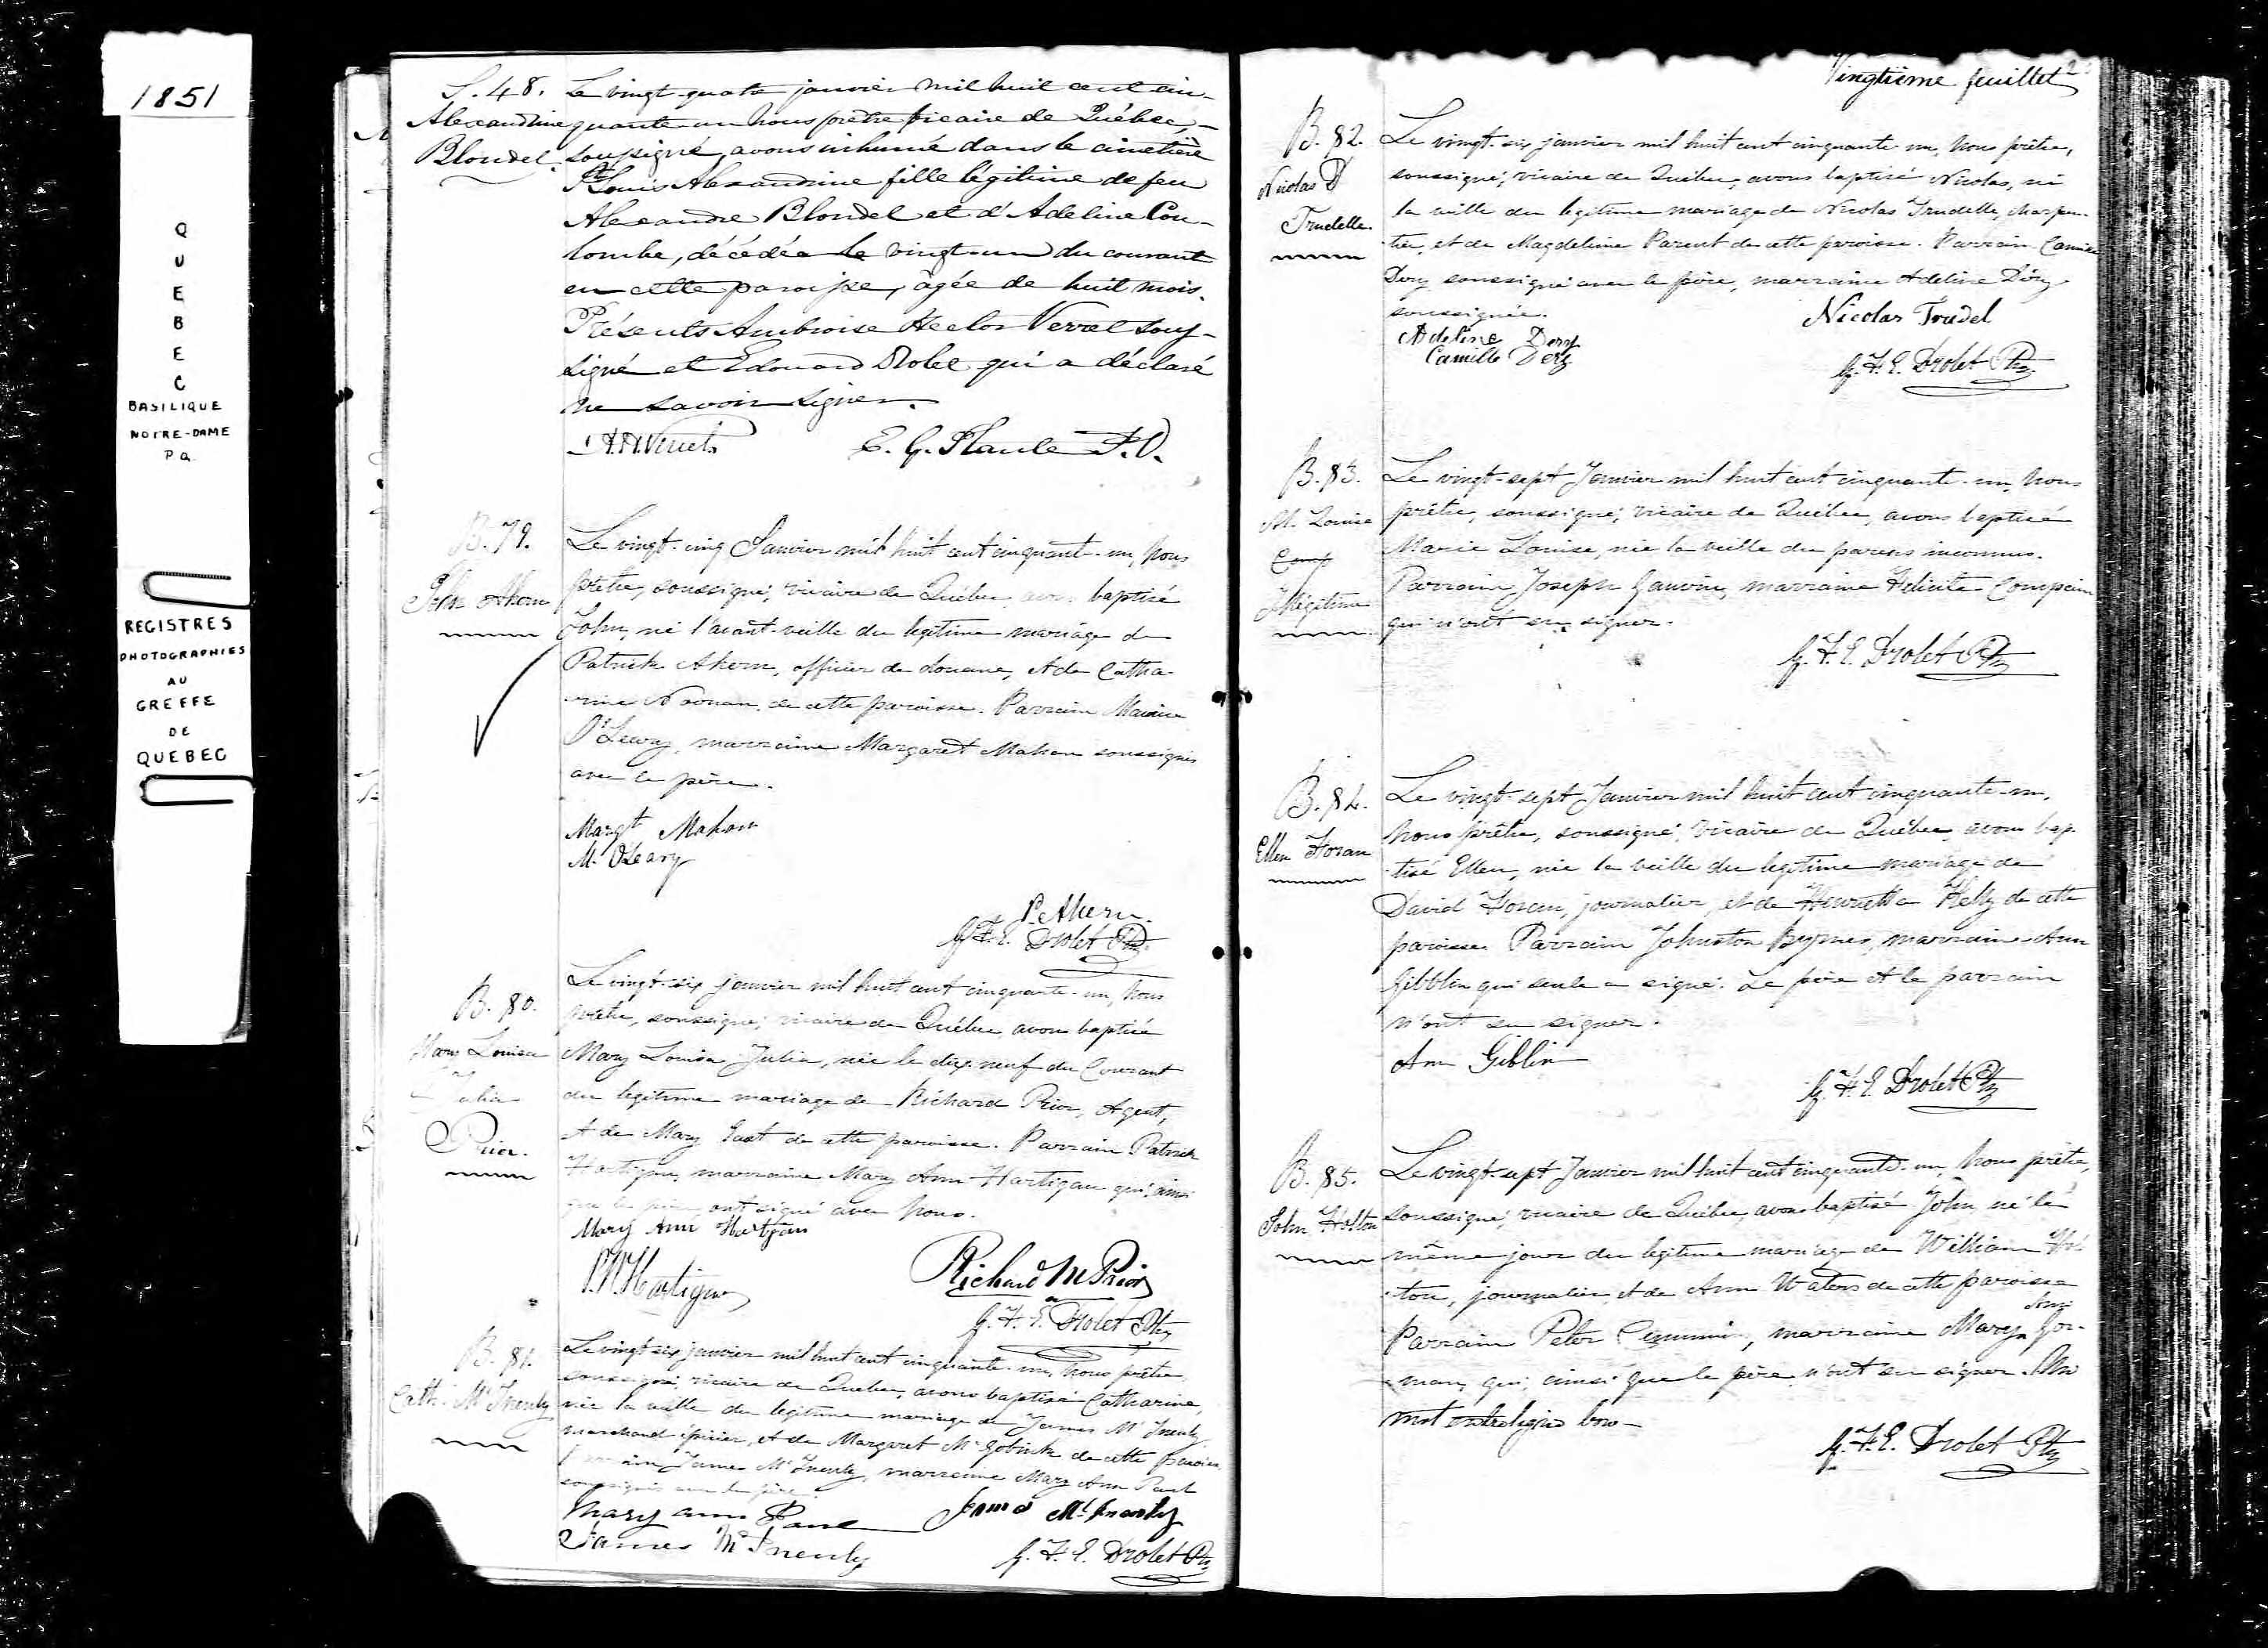 1851
QUEBEC
BASILIQUE
NOTRE-DAME
P Q
REGISTRES
PHOTOGRAPHIES
AU
GREFFE
DE
QUEBEC
S. 48.
Alexandrine
Blondel.
Le vingt-quatre janvier mil huit cent cin-
quante-un nous prêtre vicaire de Québec,
soussigné, avons inhumé dans le cimetière
St Louis Alexandrine fille légitime de feu
Alexandre Blondel et d'Adeline Cou-
lombe, décédée le vingt-un du courant
en cette paroisse, âgée de huit mois.
Présents Ambroise Hector Verret sous-
signé et Edouard Dolbec qui a déclaré
ne savoir signer.
A. H. Verret
E. G. Plante P. V.
B. 79.
John Ahern
Le vingt-cinq Janvier mil huit cent cinquante-un, Nous
prêtre, soussigné, vicaire de Québec, avons baptisé
John, né l'avant-veille du légitime mariage de
Patrick Ahern, officier de douane, et de Catha-
rine Noonan, de cette paroisse. Parrain Maurice
O'Leary, marraine Margaret Mahon soussignés
avec le père.
Margt Mahon
M. O'Leary
P. Ahern.
G. H. E. Drolet Ptre
B. 80.
Mary Louisa
Julia
Prior.
Le vingt-six janvier mil huit cent cinquante-un, Nous
prêtre, soussigné, vicaire de Québec avons baptisé
Mary Louisa Julia, née le dix-neuf du Courant
du légitime mariage de Richard Prior, Agent,
et de Mary East de cette paroisse. Parrain Patrick
Hartigan, marraine Mary Ann Hartigan qui ainsi
que le père ont signé avec Nous.
Mary Ann Hartigan
P. W. Hartigan
Richard M Prior
G. H. E. Drolet Ptre
B. 81.
Cath. McInenly
Le vingt-six janvier mil huit cent cinquante-un, Nous prêtre,
soussigné, vicaire de Québec, avons baptisé Catharine,
née la veille du légitime mariage de James McInenly
marchand épicier, et de Margaret McGoldrick de cette paroisse.
Parrain James McInenly, marraine Mary Ann Paul
soussignés avec le père.
Mary ann Paul
James McInenly
James McInenly
G. H. E. Drolet Ptre
Vingtième feuillet
B. 82.
Nicolas D
Trudelle.
Le vingt-six janvier mil huit cent cinquante-un, Nous prêtre,
soussigné, vicaire de Québec, avons baptisé Nicolas, né
la veille du légitime mariage de Nicolas Trudelle, charpen-
tier, et de Magdeleine Parent de cette paroisse. Parrain Camille
Dery soussigné avec le père, marraine Adeline Déry
soussignée.
Nicolas Trudel
Adeline Dery
Camille Dery
G. H. E. Drolet Ptre
B. 83.
M. Louise
Illégitime
Le vingt-sept Janvier mil huit cent cinquante-un, Nous
prêtre, soussigné, vicaire de Québec, avons baptisé
Marie Louise, née la veille de parens inconnus.
Parrain Joseph Gauvin, marraine Félicité Compain
qui n'ont su signer.
G. H. E. Drolet Ptre
B. 84.
Ellen Horan
Le vingt-sept Janvier mil huit cent cinquante-un,
Nous prêtre, soussigné, vicaire de Québec, avons bap-
tisé Ellen, née la veille du légitime mariage de
David Horan, journalier, et de Henrietta Kelly de cette
paroisse. Parrain Johnston Byrnes, marraine Ann
Gibblin qui seule a signé. Le père et le parrain
n'ont su signer.
Ann Giblin
G. H. E. Drolet Ptre
B. 85.
John Holton
Le vingt-sept Janvier mil huit cent cinquante-un, Nous prêtre,
soussigné, vicaire de Québec, avons baptisé John, né le
même jour du légitime mariage de William Hol-
ton, journalier, et de Ann Waters de cette paroisse
Parrain Peter Cummin, marraine Mary Ann Gor-
man, qui, ainsi que le père n'ont su signer. Un
mot entreligne bon
G. H. E. Drolet Ptre